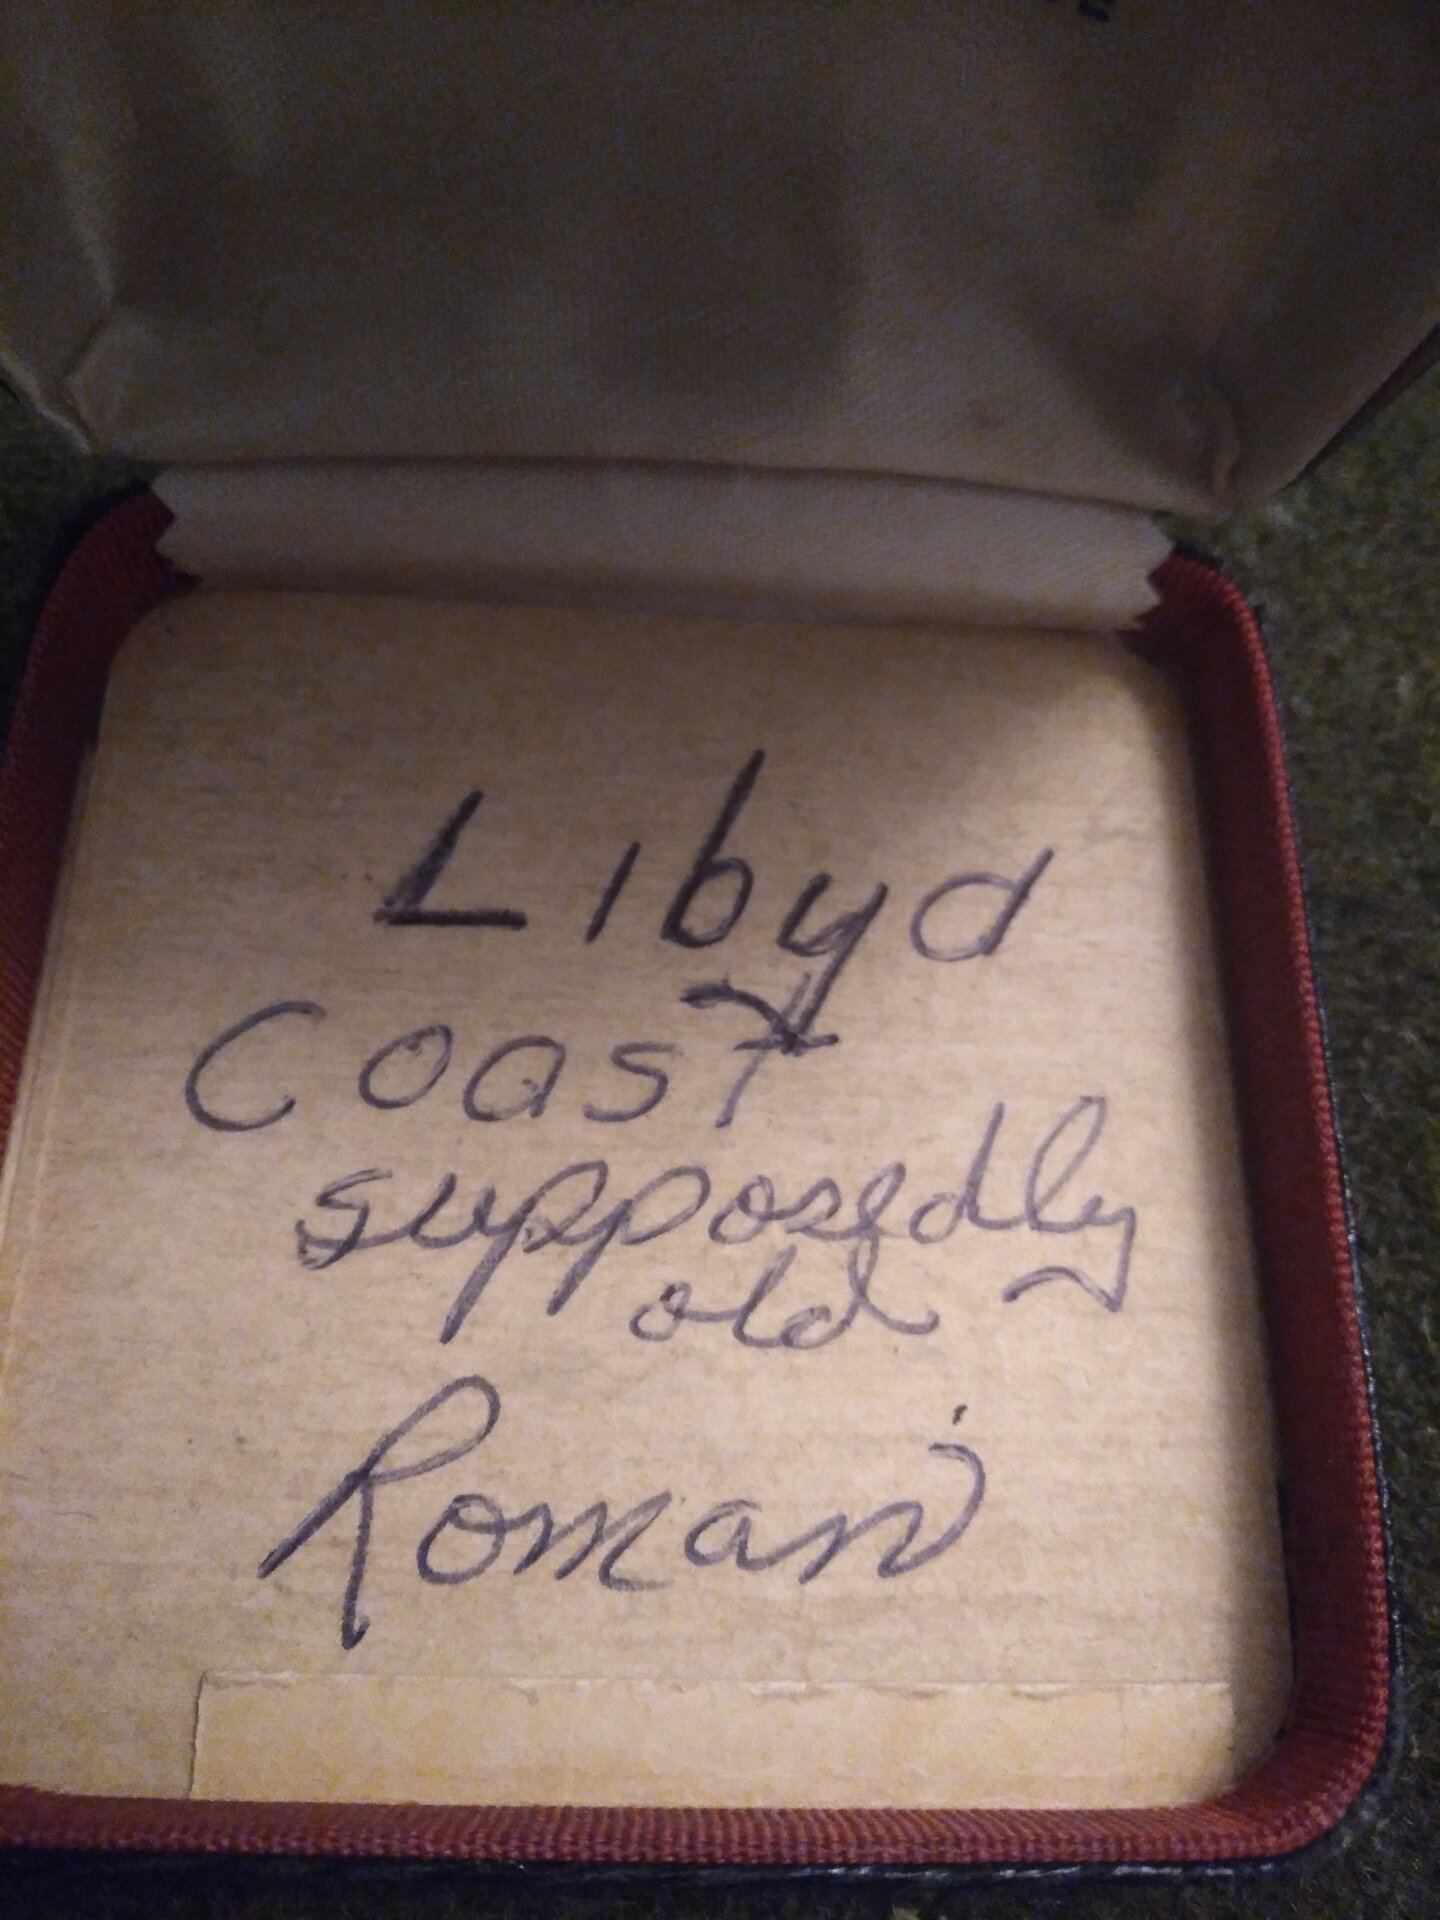 Libya
Coast
supposedly
old
Roman